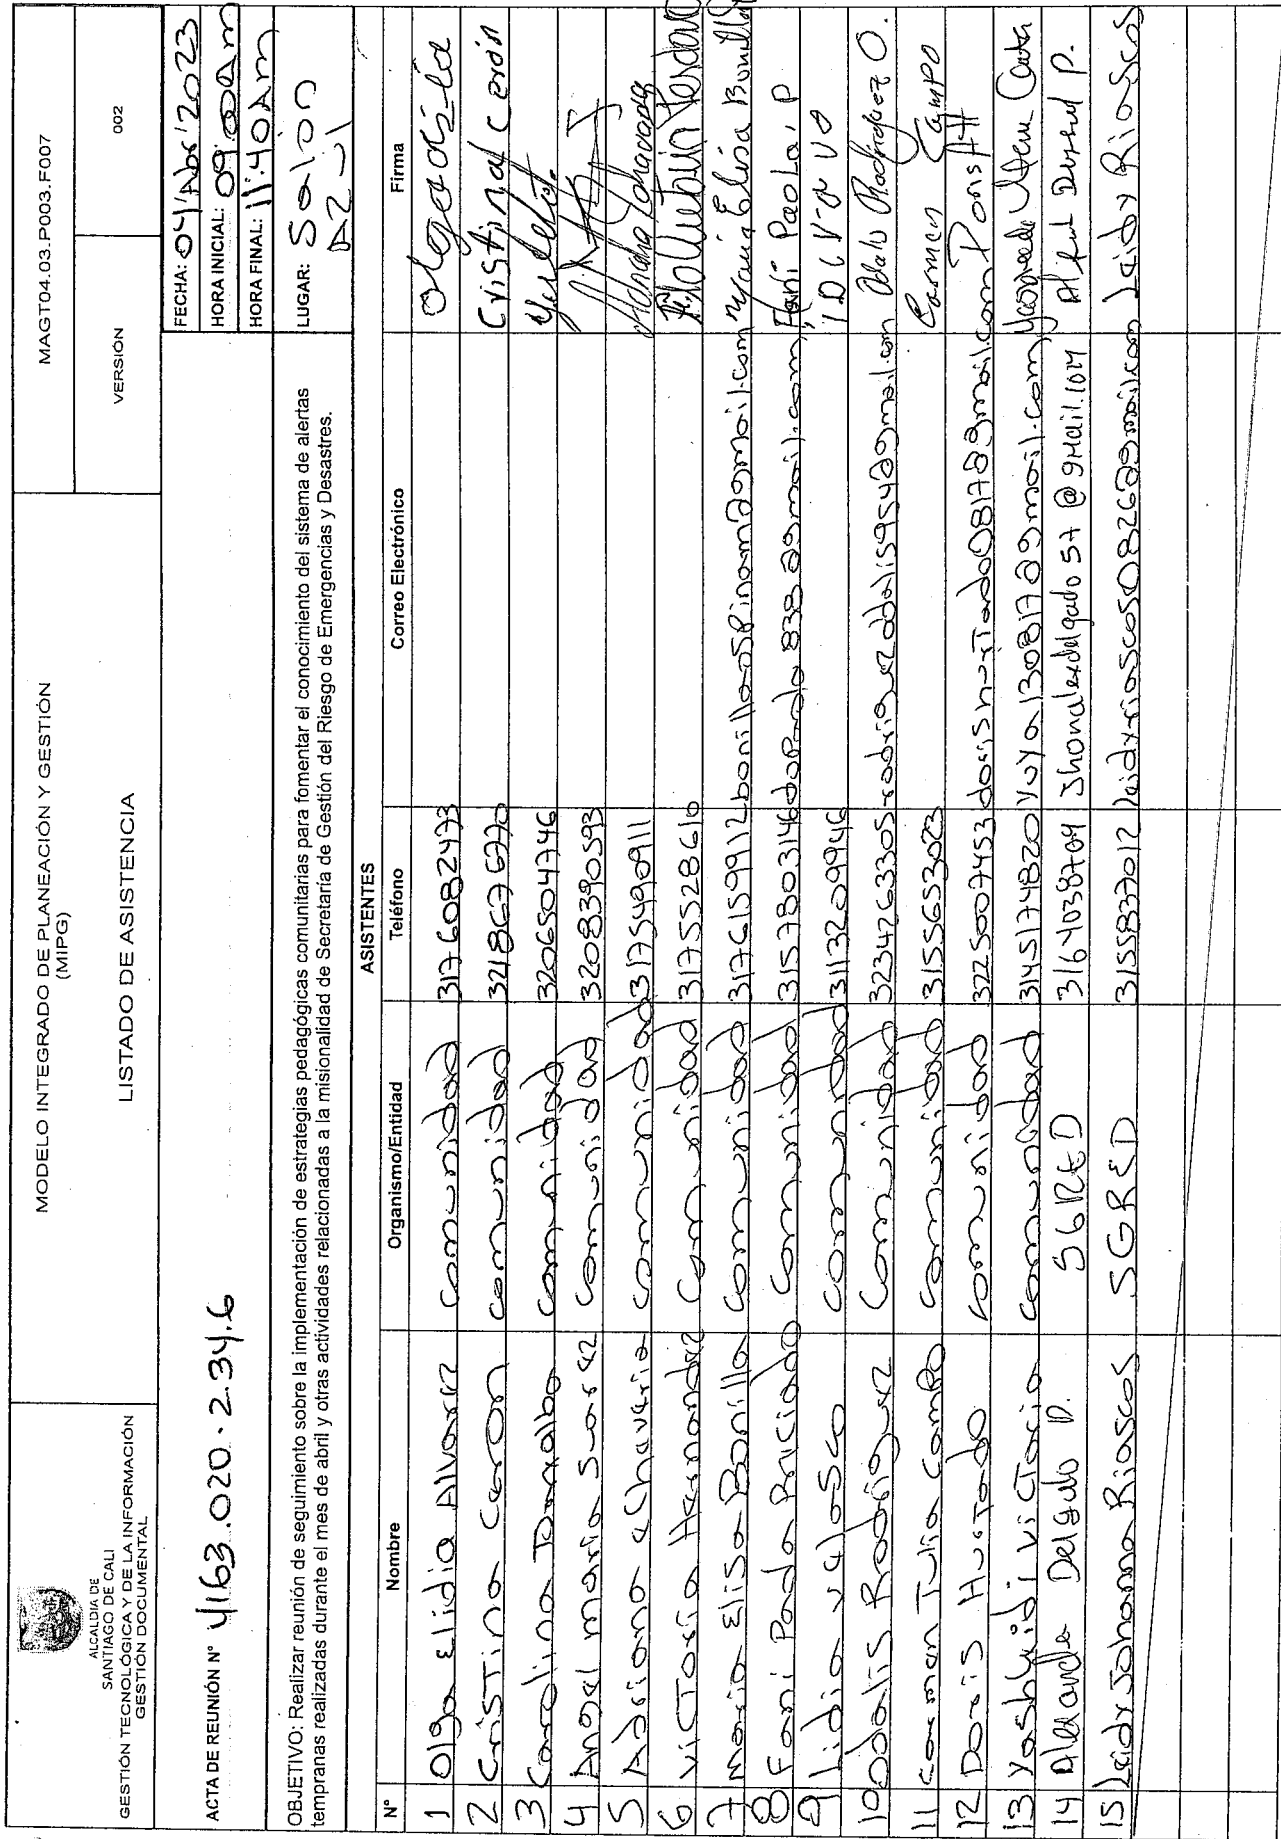 ALCALDIA DE
SANTIAGO DE CALI
GESTIÓN TECNOLÓGICA Y DE LA INFORMACIÓN
GESTIÓN DOCUMENTAL
MODELO INTEGRADO DE PLANEACIÓN Y GESTIÓN
(MIPG)
LISTADO DE ASISTENCIA
MAGT04.03.P003.F007
VERSIÓN 002
ACTA DE REUNIÓN N° 4163.020.2.34.6
FECHA: 04/Abr/2023
HORA INICIAL: 09:00am
HORA FINAL: 11:40am
OBJETIVO: Realizar reunión de seguimiento sobre la implementación de estrategias pedagógicas comunitarias para fomentar el conocimiento del sistema de alertas
tempranas realizadas durante el mes de abril y otras actividades relacionadas a la misionalidad de Secretaría de Gestión del Riesgo de Emergencias y Desastres.
LUGAR: Salon
ASISTENTES
N° Nombre Organismo/Entidad Teléfono Correo Electrónico Firma
1 Olga Elidia Alvarez comunidad 3176082473
2 Cristina Ceron comunidad 3218676770 Cristina Cerón
3 Carolina comunidad 3206504746
4 Angel maria Suarez comunidad 3208390593
5 Adriana Chavarria comunidad 3175490911 Adriana Chavarria
6 Victoria Hernandez Comunidad 3175528610
7 Maria Elisa Bonilla Comunidad 3176159912 bonillaospinam@gmail.com Maria Elisa Bonilla
8 Fani Paola Preciado Comunidad 3157803146 Fani Paola. P
9 Lidia veloSco comunidad 3113209946
10 Odalis Rodriguez Comunidad 3234763305 rodriguezodalis954@gmail.com Odalis Rodriguez O.
11 carmen Tulia Campo Comunidad 3155653023 Carmen Campo
12 Doris Hurtado comunidad 3225007453 dorishurtado0817@gmail.com Doris H
13 Yashleidi Victoria Comunidad 3145174820 yuya130817@gmail.com
14 Alexander Delgado P. SGRED 3164038709 Jhonalexdelgado57@gmail.com
15 Leidy Johanna Riascos SGRED 3155837012 leidyriascos0826@gmail.com Leidy Riascos